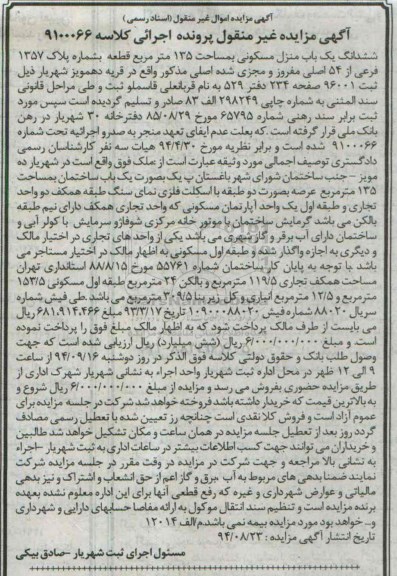 آگهی مزایده اموال غیر منقول (اسناد رسمی)
آگهی مزایده غیر منقول پرونده اجرائی کلاسه ۹۱۰۰۰۶۶
ششدانگ یک باب منزل مسکونی بمساحت ۱۳۵ متر مربع قطعه بشماره پلاک ۱۳۵۷
فرعی از ۵۴ اصلی مفروز و مجزی شده اصلی مذکور واقع در قریه دهمویز شهریار ذیل
ثبت ۹۶۰۰۱ صفحه ۲۳۴ دفتر ۵۲۹ به نام قربانعلی قاسملو ثبت و طی مراحل قانونی
سند المثنی به شماره چاپی ۲۹۸۲۴۹ الف ۸۳ صادر و تسلیم گردیده است سپس مورد
ثبت برابر سند رهنی شماره ۶۵۷۹۵ مورخ ۸۵/۰۸/۲۹ دفترخانه ۳۰ شهریار در رهن
بانک ملی قرار گرفته است .که بعلت عدم ایفای تعهد منجر به صدور اجرائیه تحت شماره
۹۱۰۰۰۶۶ شده است و برابر نظریه مورخ ۹۴/۴/۳۰ هیات سه نفر کارشناسان رسمی
دادگستری توصیف اجمالی مورد وثیقه عبارت است از ملک فوق واقع است در شهریار ده
مویز - جنب ساختمان شورای شهر باغستان پ یک بصورت یک باب ساختمان بمساحت
۱۳۵ مترمربع عرصه بصورت دو طبقه با اسکلت فلزی نمای سنگ طبقه همکف دو واحد
تجاری و طبقه اول یک واحد آپارتمان مسکونی که واحد تجاری همکف دارای نیم طبقه
بالکن می باشد گرمایش ساختمان با موتور خانه مرکزی شوفاژ و سرمایش با کولر آبی و
ساختمان دارای آب برق و گاز شهری می باشد یکی از واحد های تجاری در اختیار مالک
و دیگری به اجازه واگذار شده و طبقه اول مسکونی به اظهار مالک در اختیار مستاجر می
باشد .با توجه به پایان کار ساختمان شماره ۵۵۷۶۱ مورخ ۸۸/۸/۱۵ استانداری تهران
مساحت همکف تجاری ۱۱۹/۵ مترمربع و بالکن ۲۴ مترمربع طبقه اول مسکونی ۱۵۳/۵
مترمربع و ۱۲/۵ مترمربع انباری و کل زیر بنا ۳۰۹/۵ مترمربع می باشد .طی فیش شماره
سریال ۸۸۰۲۰ شماره فیش ۱۰۹۰۰۰۰۸۸۰۲۰ تاریخ ۹۳/۳/۱۷ مبلغ ۶۸۱,۹۱۴,۴۶۶ ریال
می بایست از طرف مالک پرداخت شود که به اظهار مالک مبلغ فوق را پرداخت نموده
است. و مبلغ ۶/۰۰۰/۰۰۰/۰۰۰ ریال (شش میلیارد) ریال ارزیابی شده است که جهت
وصول طلب بانک و حقوق دولتی کلاسه فوق الذکر در روز دوشنبه ۹۴/۰۹/۱۶ از ساعت
۹ الی ۱۲ ظهر در محل اداره ثبت شهریار واحد اجراء به نشانی شهریار شهرک اداری از
طریق مزایده حضوری بفروش می رسد و مزایده از مبلغ ۶/۰۰۰/۰۰۰/۰۰۰ ریال شروع و
به بالاترین قیمت که خریدار داشته باشد فروخته خواهد شد شرکت در جلسه مزایده برای
عموم آزاد است و فروش کلا نقدی است چنانچه رز تعیین شده با تعطیل رسمی مصادف
گردد روز بعد از تعطیل جلسه مزایده در همان ساعت و مکان تشکیل خواهد شد طالبین
و خریداران می توانند جهت کسب اطلاعات بیشتر در ساعات اداری به ثبت شهریار -اجراء
به نشانی بالا مراجعه و جهت شرکت در مزایده در وقت مقرر در جلسه مزایده شرکت
نمایند ضمنا بدهی های مربوط به آب ،برق و گاز اعم از حق انشعاب و اشتراک و نیز بدهی
مالیاتی و عوارض شهرداری و غیره که رقم قطعی آنها برای این اداره معلوم نشده بعهده
برنده مزایده است و تنظیم سند انتقال موکول به ارائه مفاصا حسابهای دارایی و شهرداری
و... خواهد بود مورد مزایده بیمه نمی باشد.م/الف ۱۲۰۱۴
تاریخ انتشار آگهی مزایده : ۹۴/۰۸/۲۳
مسئول اجرای ثبت شهریار -صادق بیکی